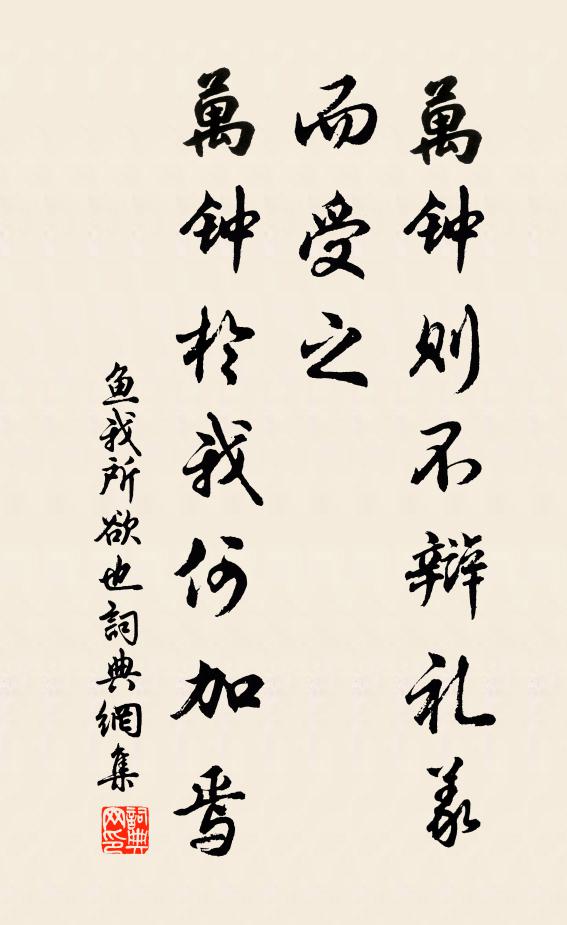 萬钟则不辩礼义
而受之
萬钟於我何加焉
鱼我所欲也詞典網集
詞典
网印